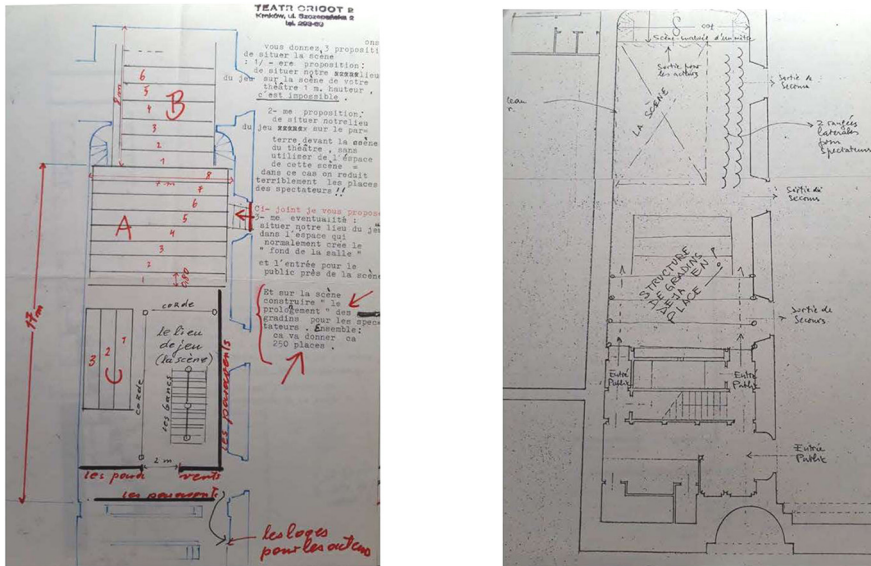 TEATR CRICOT 2
Kraków, ul. Szczepańska 2
tel. 293-60
ons
vous donnes 3 propositi
de situer la scène
: 1/ - ere proposition:
de situer notre xxxxx lieu
du jeu sur la scène de votre
théâtre 1 m. hauteur,
c'est impossible.
2- me proposition.
de situer notrelieu
du jeu xxxxxx sur le par=
terre devant la scène
du théâtre, sans
utiliser de l'espace
de cette scène =
dans ce cas on reduit
terriblement les places
des spectateurs !!
Ci- joint je vous propose
3- me eventualité :
situer notre lieu du jeu
dans l'espace qui
normalement crée le
" fond de la salle "
et l'entrée pour le
public près de la scène
Et sur la scène
construire " le
prolongement " des
gradins pour les spec
tateurs. Ensemble:
ca va donner ca
250 places.
6
5
4
3
2
1
B
8 m
8
7 m
7
6
5
4
3
2
1
A
0,80
17 m
corde
le lieu
de jeu
(la scène)
3 2 1
C
corde
les bancs
les paravents
2 m
les para vents
les paravents
les loges
pour les acteurs
Sortie pour
les acteurs
LA SCÈNE
Sortie de
Secours
2 rangées
laterales
pour
spectateurs
Sortie de
Secours
STRUCTURE
DE GRADINS
DEJA EN
PLACE
Sortie de
Secours
Entrée
Public
Entrée
Public
Entrée
Public